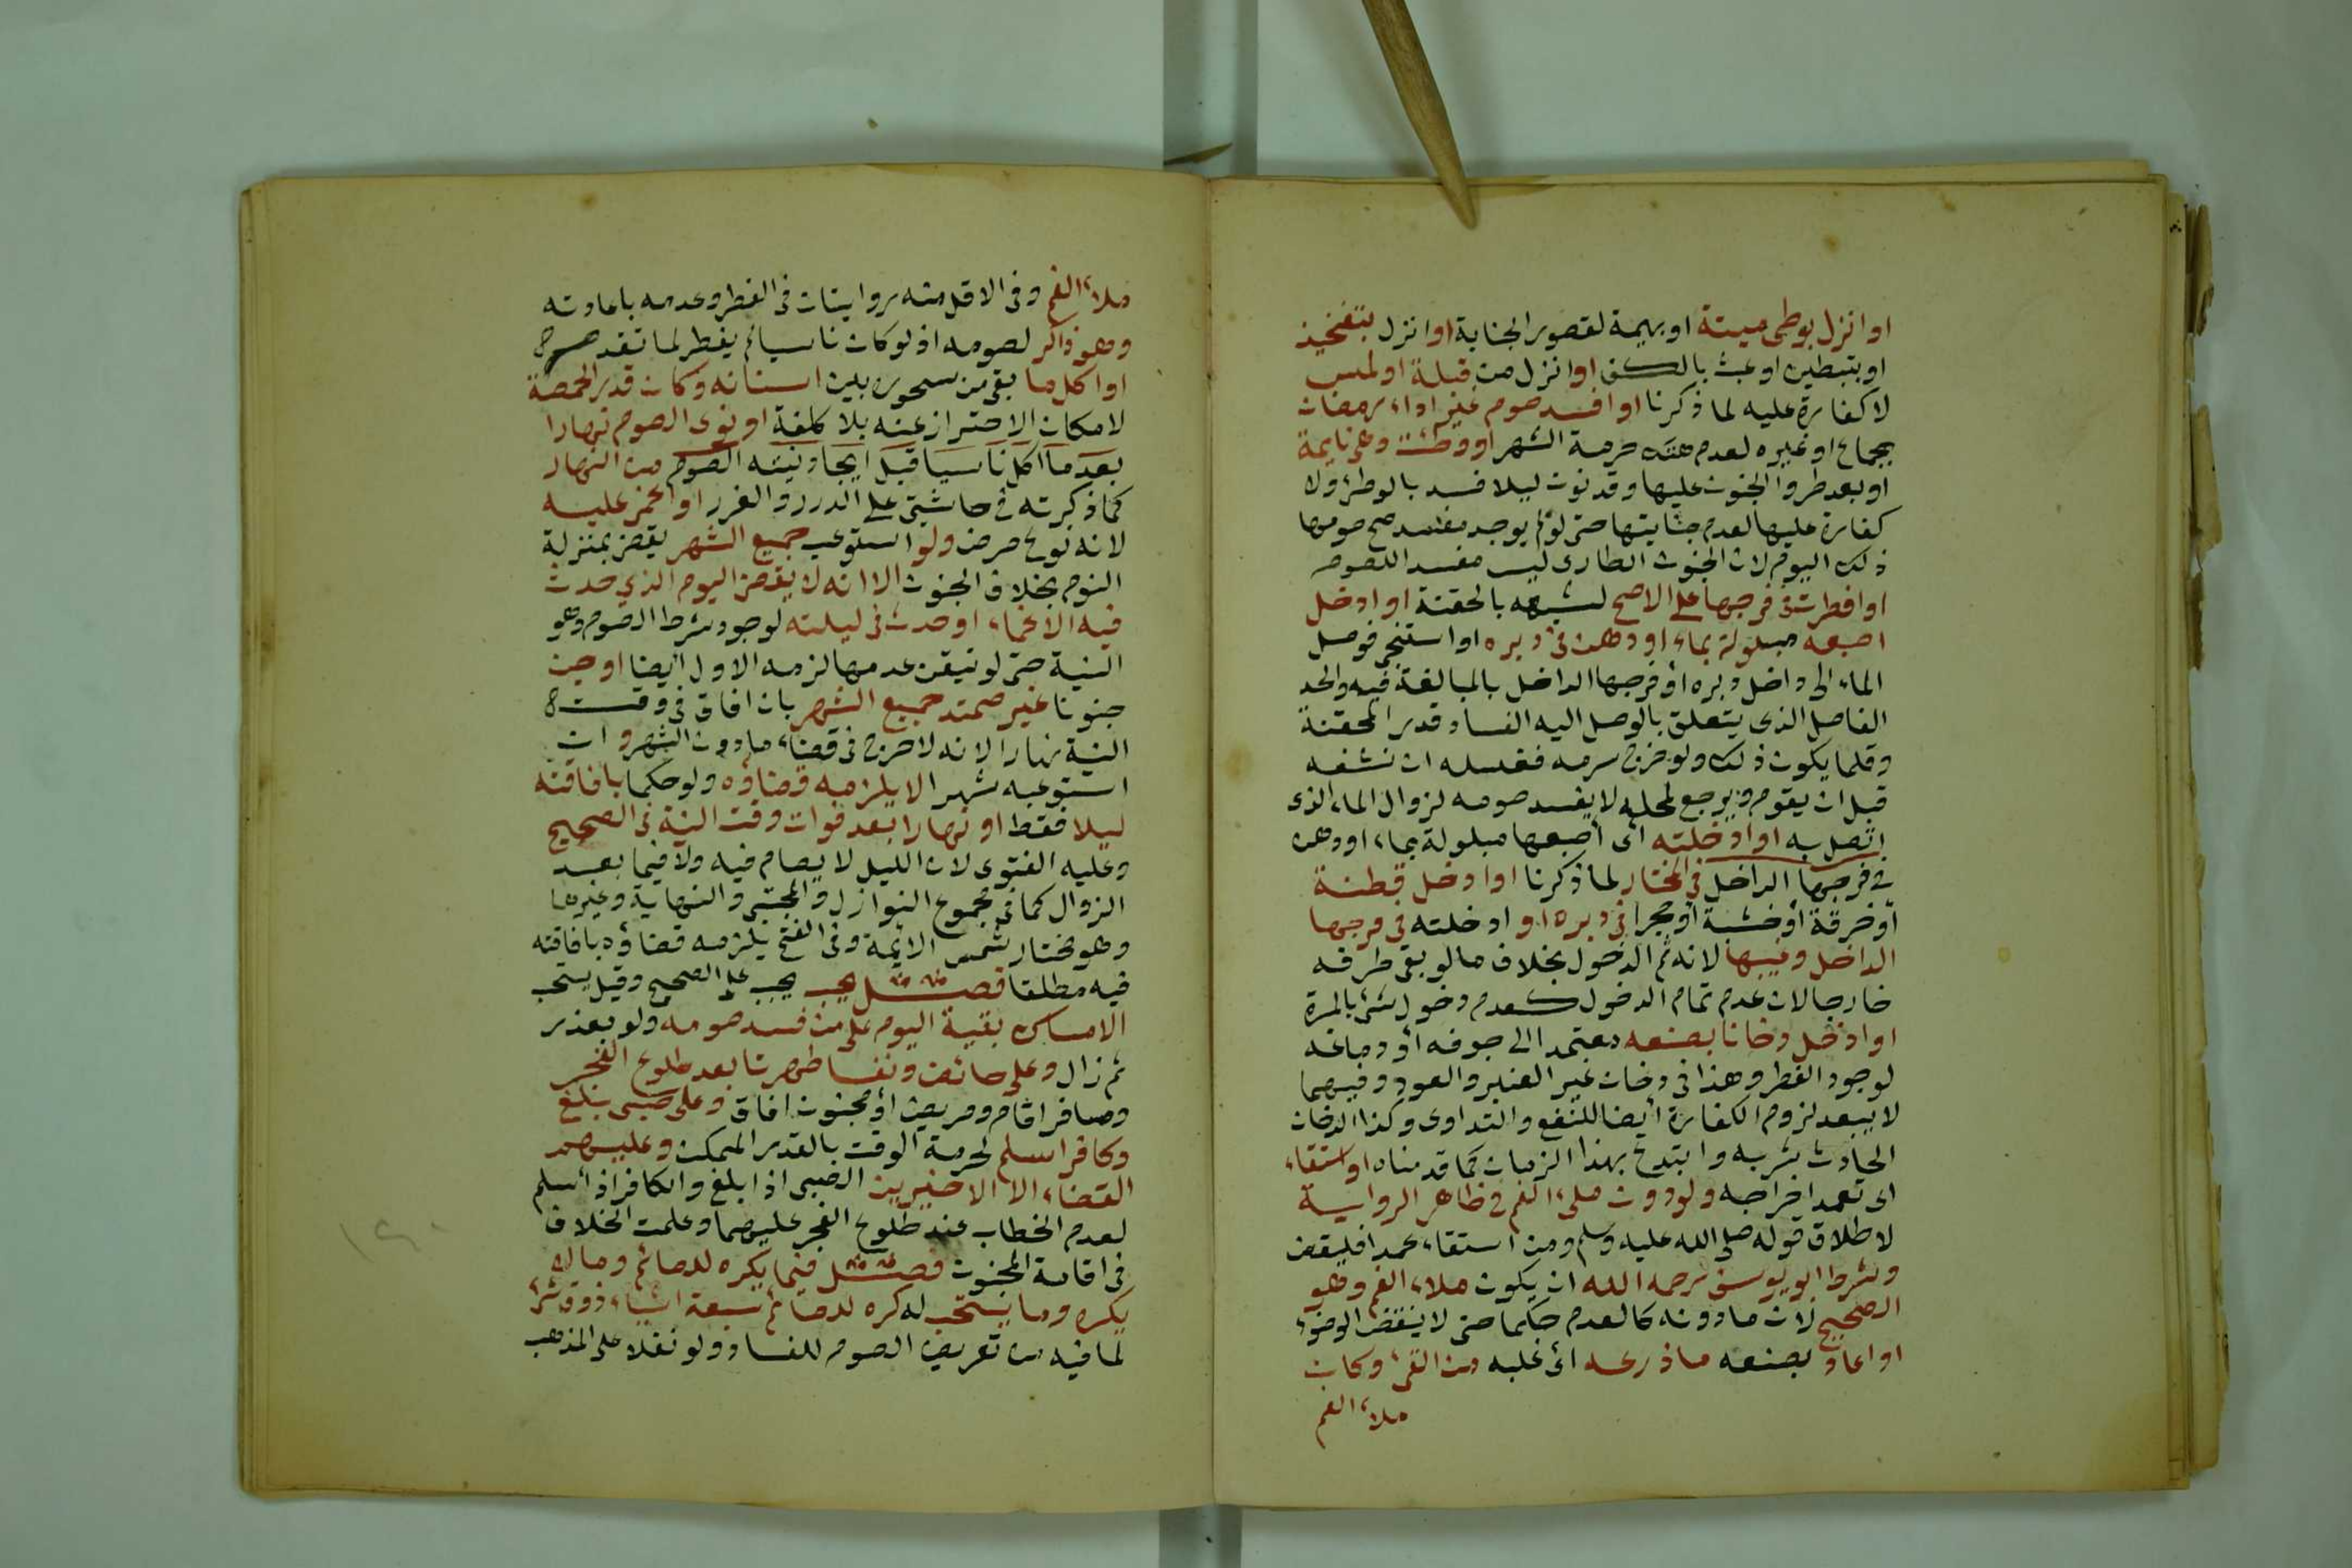 او انزل بوطى ميتة او بهيمة لقصور الجناية او انزل بتفخيذ
او بتبطين او عبث بالكف او انزل من قبلة او لمس
لا كفارة عليه لما ذكرنا او افسد صوم غير اداء رمضان
بجماع او غيره لعدم هتك حرمة الشهر او وطئت وهى نايمة
او بعد طروا الجنون عليها وقد نوت ليلا فسد بالوطئ ولا
كفارة عليها لعدم جنايتها حتى لو لم يوجد مفسد صح صومها
ذلك اليوم لان الجنون الطارى ليس مفسدا للصوم
او اقطرت فى فرجها على الاصح لشبهه بالحقنة او ادخل
اصبعه مبلولة بماء او دهن فى دبره او استنجى فوصل
الماء الى داخل دبره او فرجها الداخل بالمبالغة فيه والحد
الفاصل الذى يتعلق بالوصل اليه الفساد قدر المحقنة
وقلما يكون ذلك ولو خرج سرمه فغسله ان نشفه
قبل ان يقوم ويرجع لمحله لا يفسد صومه لزوال الماء الذى
اتصل به او ادخلته اى اصبعها مبلولة بماء او دهن
فى فرجها الداخل فى المختار لما ذكرنا او ادخل قطنة
او خرقة او خشبة او حجرا فى دبره او ادخلته فى فرجها
الداخل وغيبها لانه تم الدخول بخلاف ما لو بقى طرفه
خارجا لان عدم تمام الدخول كعدم دخول شئ بالمرة
او ادخل دخانا بصنعه متعمدا الى جوفه او دماغه
لوجود الفطر وهذا فى دخان غير العنبر والعود وفيهما
لا يبعد لزوم الكفارة ايضا للنفع والتداوى وكذا الدخان
الحادث شربه وابتدع بهذا الزمان كما قدمناه او استقاء
اى تعمد اخراجه ولو دون ملئ الفم فى ظاهر الرواية
لاطلاق قوله صلى الله عليه وسلم ومن استقاء عمدا فليقض
وشرط ابو يوسف رحمه الله ان يكون ملاء الفم وهو
الصحيح لان ما دونه كالعدم حكما حتى لا ينقض الوضوء
او اعاد بصنعه ما ذرعه اى غلبه من القئ وكان
ملاء الفم
ملاء الفم وفى الاقل منه روايتان فى الفطر وعدمه باعادته
وهو ذاكر لصومه اذ لو كان ناسيا لم يفطر لما تقدم
او اكل ما بقى من سحوره بين اسنانه وكان قدر الحمصة
لامكان الاحتراز عنه بلا كلفة او نوى الصوم نهارا
بعد ما اكل ناسيا قبل ايجاد نيته الصوم من النهار
كما ذكرته فى حاشيتى على الدرر والغرر او اغمى عليه
لانه نوع مرض ولو استوعب جميع الشهر يقضى بمنزلة
النوم بخلاف الجنون الا انه لا يقضى اليوم الذى حدث
فيه الاغماء او حدث فى ليلته لوجود شرط الصوم وهو
النية حتى لو تيقن عدمها لزمه الاول ايضا او جن
جنونا غير ممتد جميع الشهر بان افاق فى وقت
النية نهارا لانه لا حرج فى قضاء ما دون الشهر وان
استوعبه شهرا لا يلزمه قضاؤه ولو حكما بافاقته
ليلا فقط او نهارا بعد فوات وقت النية فى الصحيح
وعليه الفتوى لان الليل لا يصام فيه ولا فيما بعد
الزوال كما فى مجموع النوازل والمجتبى والنهاية وغيرها
وهو مختار شمس الائمة وفى الفتح يلزمه قضاؤه بافاقته
فيه مطلقا فصل يجب يجب على الصحيح وقيل يستحب
الامساك بقية اليوم على من فسد صومه ولو بعذر
ثم زال وعلى حائض ونفسا طهرتا بعد طلوع الفجر
ومسافر اقام ومريض او مجنون افاق وعلى صبى بلغ
وكافر اسلم لحرمة الوقت بالقدر الممكن وعليهم
القضاء الا الاخيرين الصبى اذا بلغ والكافر اذا اسلم
لعدم الخطاب عند طلوع الفجر عليهما وعلمت الخلاف
فى اقامة المجنون فصل فيما يكره للصائم وما لا
يكره وما يستحب له كره للصائم سبعة اشياء ذوق شئ
لما فيه من تعريض الصوم للفساد ولو نفلا على المذهب
١٢٠